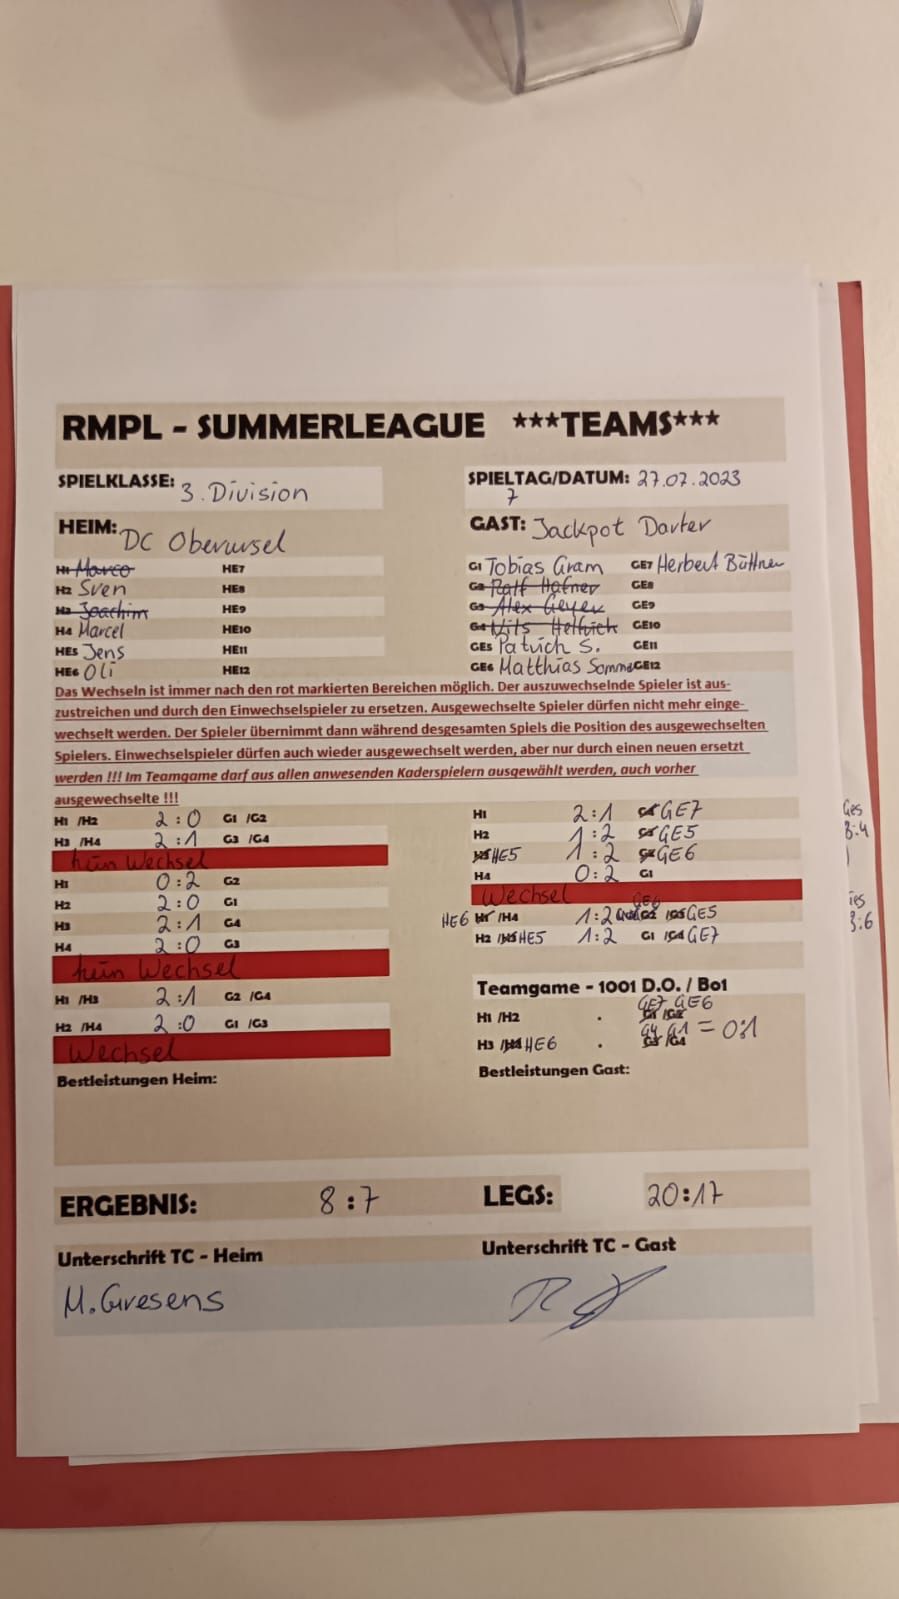 RMPL - SUMMERLEAGUE ***TEAMS***
SPIELKLASSE: 3. Division
SPIELTAG/DATUM: 27.07.2023
7
HEIM: DC Oberursel
GAST: Jackpot Darter
H1 Marco HE7
H2 Sven HE8
H3 Joachim HE9
H4 Marcel HE10
HE5 Jens HE11
HE6 Oli HE12
G1 Tobias Gram GE7 Herbert Büttner
G2 Ralf Hafner GE8
G3 Alex Geyer GE9
G4 Nils Helfrich GE10
GE5 Patrick S. GE11
GE6 Matthias Somme GE12
Das Wechseln ist immer nach den rot markierten Bereichen möglich. Der auszuwechselnde Spieler ist aus-
zustreichen und durch den Einwechselspieler zu ersetzen. Ausgewechselte Spieler dürfen nicht mehr einge-
wechselt werden. Der Spieler übernimmt dann während desgesamten Spiels die Position des ausgewechselten
Spielers. Einwechselspieler dürfen auch wieder ausgewechselt werden, aber nur durch einen neuen ersetzt
werden !!! Im Teamgame darf aus allen anwesenden Kaderspielern ausgewählt werden, auch vorher
ausgewechselte !!!
H1 /H2 2:0 G1 /G2
H3 /H4 2:1 G3 /G4
kein Wechsel
H1 0:2 G2
H2 2:0 G1
H3 2:1 G4
H4 2:0 G3
kein Wechsel
H1 /H3 2:1 G2 /G4
H2 /H4 2:0 G1 /G3
Wechsel
Bestleistungen Heim:
H1 2:1 GE7
H2 1:2 GE5
HE5 1:2 GE6
H4 0:2 G1
Wechsel
GE6
HE6 H1 /H4 1:2 G2 /G3 GE5
H2 /H3 HE5 1:2 G1 /G4 GE7
Teamgame - 1001 D.O. / Bo1
GE7 GE6
H1 /H2 . G1 /G2
G4 G1 = 0:1
H3 /H4 HE6 . G3 /G4
Bestleistungen Gast:
ERGEBNIS: 8:7
LEGS: 20:17
Unterschrift TC - Heim
Unterschrift TC - Gast
M. Gresens
Ges
3:4
3:6